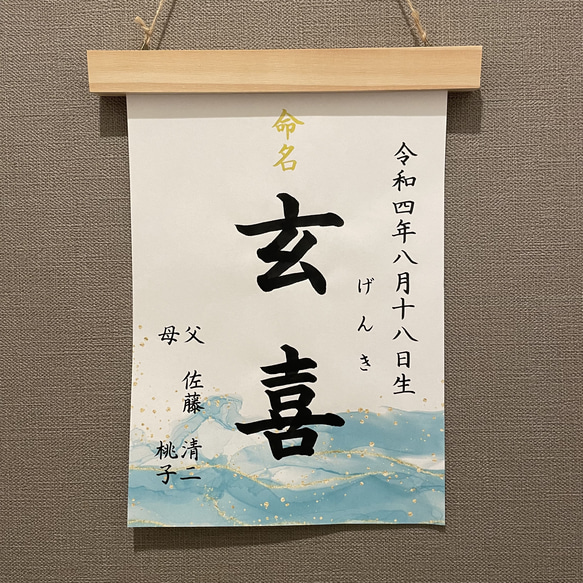 命名
令和四年八月十八日生
げんき
玄喜
父 佐藤 清二
母 桃子